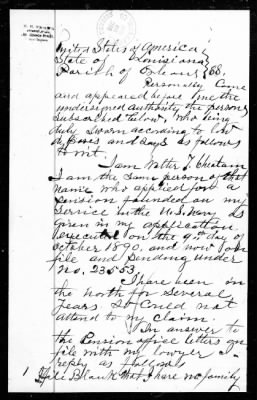 United States of America
State of Louisiana
Parish of Orleans } ss.
Personally Came
and appeared before me the
undersigned authority the person
subscribed below, who being
duly Sworn according to law
deposes and says as follows
to wit.
I am Walter T. Chatam
I am the same person of that
name who applied for a
pension founded on my
service in the U.S. Navy as
given in my application
executed on the 9th day of
october 1890, and now on
file and pending under
No. 23553.
I have been in
the north for several
years & could not
attend to my claim.
In answer to
the Pension office letters on
file with my lawyer I
reply as follows
1 File Blank that I have no family